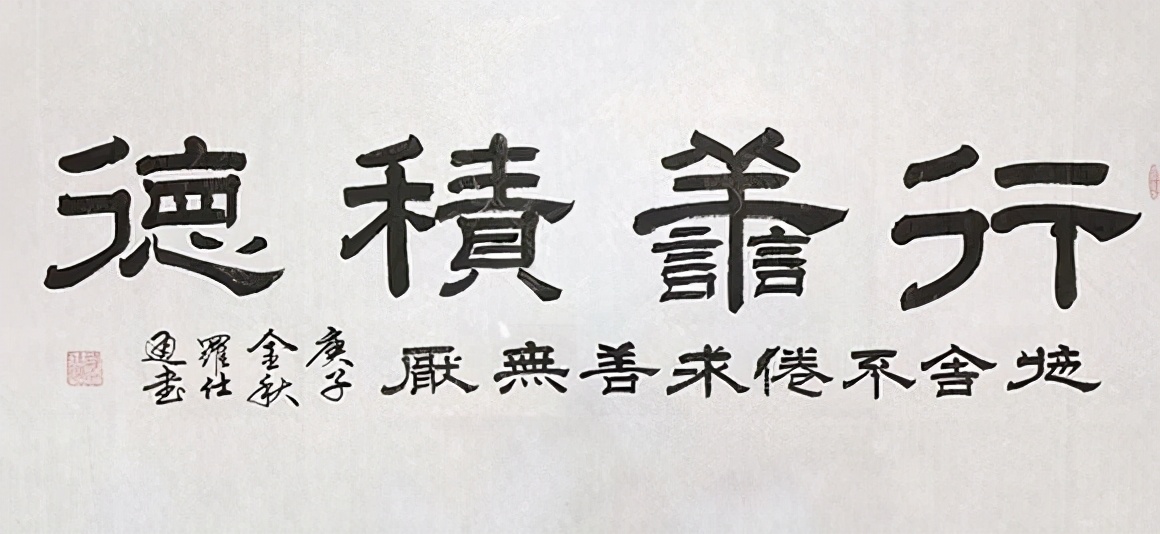 行譱積德
施舍不倦求善無厭
庚子
金秋
羅仕
通書